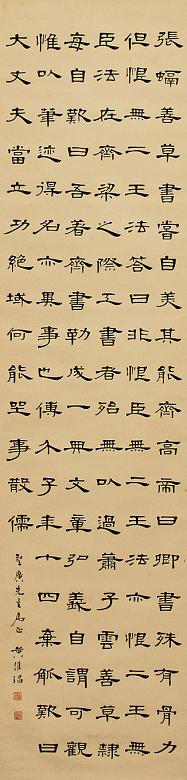 張螎善草書嘗自美其能齊高帝曰卿書殊有骨力
但恨無二王法答曰非恨臣無二王法亦恨二王無
臣法在齊梁之際工書者殆無以過蕭子雲善草隸
每自歎曰吾著齊書勒成一典文章弘義自謂可觀
惟以筆迹得名亦異事也傅介子年十四棄觚歎曰
大丈夫當立功絕域何能坐事散儒
先生屬正 黃維